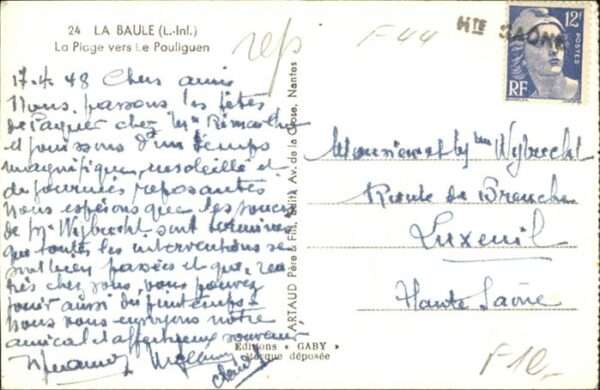 24 LA BAULE (L.-Inf.)
La Plage vers Le Pouliguen
rep
F 44
Hte SAÔNE
12F
POSTES
RF
17.4.48 Chers amis
Nous passons les fêtes
de Paques chez Mme
et jouissons d'un temps
magnifique, ensoleillé et
de journées reposantes
Nous espérons que les soucis
de Mr Wybrecht sont terminés
que toutes les interventions se
sont bien passées et que, ren
trés chez vous, vous pouvez
jouir aussi du printemps.
Nous vous envoyons notre
amical et affectueux souvenir
ARTAUD Père & Fils, Edit., Av. de la Gare, Nantes
Editions "GABY"
Marque déposée
Monsieur et Mme Wybrecht
Route de
Luxeuil
Haute Saône
F10.-